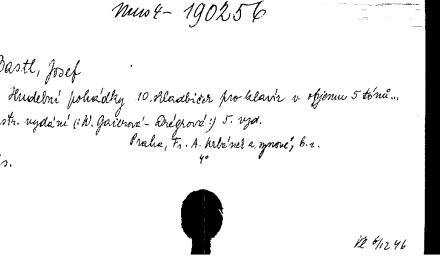 Mus 4 - 190256
Bastl, Josef
Hudební pohádky 10 skladbiček pro klavír v objemu 5 tónů...
str. vydání (: K. Gaierová - Drégrová :) 5. vyd.
Praha, Fr. A. Urbánek a synové, b. r.
4°
s.
6/12 46